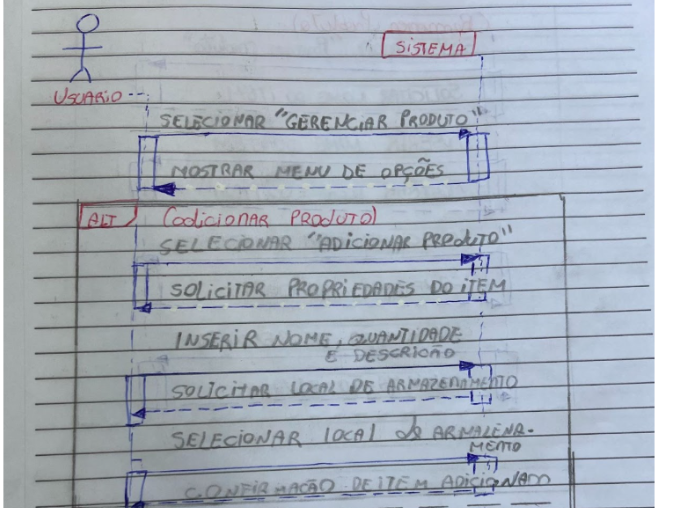 SISTEMA
USUARIO
SELECIONAR "GERENCIAR PRODUTO"
MOSTRAR MENU DE OPÇÕES
ALT (adicionar PRODUTO)
SELECIONAR "ADICIONAR PRODUTO"
SOLICITAR PROPRIEDADES DO ITEM
INSERIR NOME, QUANTIDADE
E DESCRIÇÃO
SOLICITAR LOCAL DE ARMAZENAMENTO
SELECIONAR LOCAL de ARMAZENA-
MENTO
CONFIRMAÇÃO DE ITEM ADICIONADO